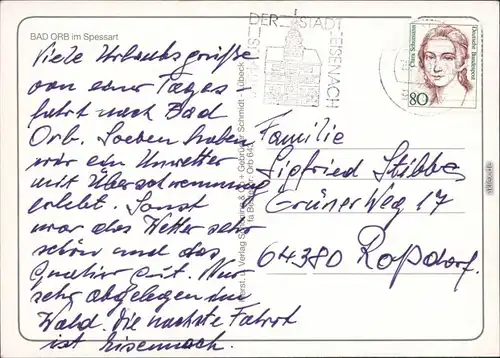 BAD ORB im Spessart
Viele Urlaubsgrüße
von einer Tages
fahrt nach Bad
Orb. Soeben haben
wir ein Unwetter
mit Überschwemmung
erlebt. Sonst
war das Wetter sehr
schön und das
Quatier gut. Nur
sehr abgelegen im
Wald. Die nächste Fahrt
ist Eisennach.
DER STADT
EISENACH
Clara Schumann
Deutsche Bundespost
80
Familie
Sigfried Stibbe
Grüner Weg 17
64380 Roßdorf.
Verlag Schöning & Co + Gebrüder Schmidt - Lübeck